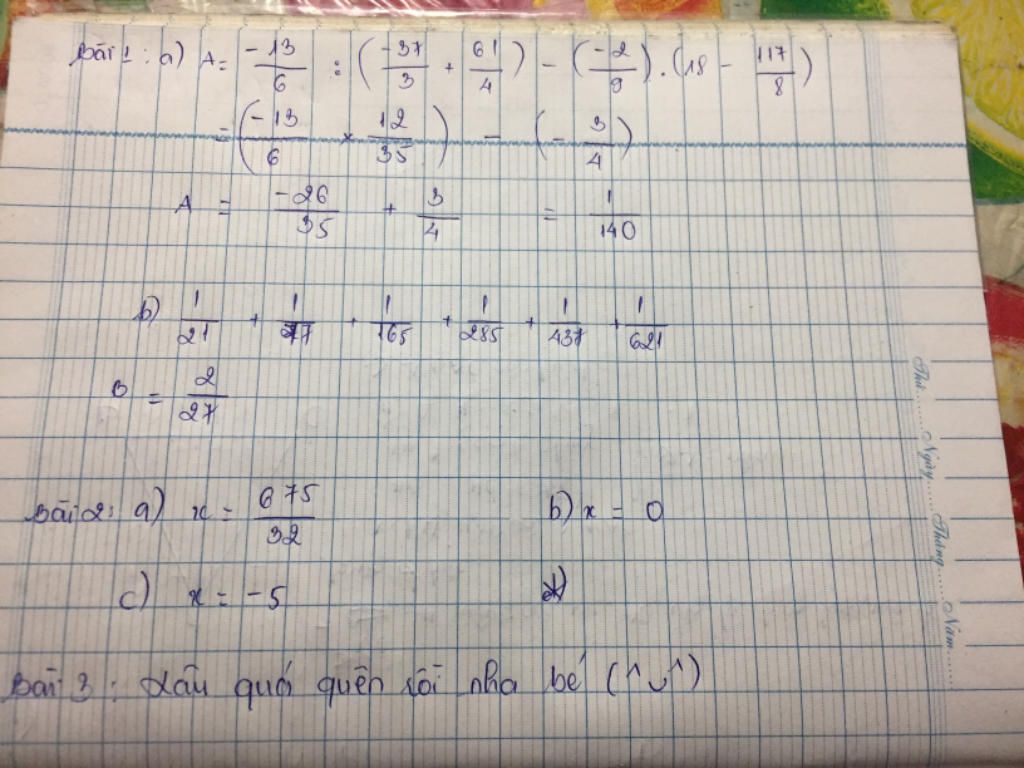 Bài 1 : a) A = -13/6 : (-37/3 + 61/4) - (-2/9) . (18 - 117/8)
= (-13/6 × 12/35) - (-3/4)
A = -26/35 + 3/4 = 1/140
b) 1/21 + 1/77 + 1/165 + 1/285 + 1/437 + 1/621
B = 2/27
Bài 2: a) x = 675/32 b) x = 0
c) x = -5
Bài 3 : Lâu quá quên rồi nha bé (^◡^)
Thứ.......Ngày.......Tháng.......Năm.......